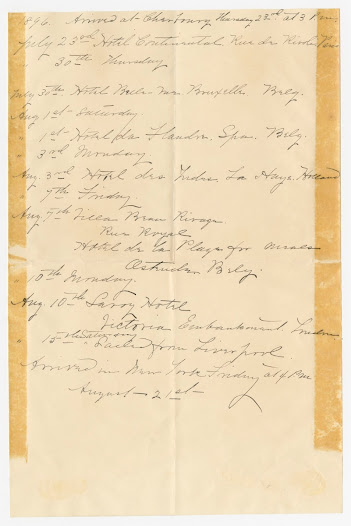 1896. Arrived at Cherbourg Thursday 23rd at 3 P.m.
July 23rd Hotel Continental Rue de
" 30th Thursday
July 30th Hotel Bruxelles Belg.
Aug 1st Saturday
" 1st Hotel de Flandre. Spa. Belg.
" 3rd Monday
Aug. 3rd Hotel des Indes, La Haye, Holland
" 7th Friday
Aug 7th Villa Beau Rivage
Rue Royal
Hotel de la Plage for meals
Ostende Belg.
" 10th Monday
Aug 10th Savoy Hotel
Victoria Embankment, London
" 15th Saturday Sailed from Liverpool.
Arrived in New York Friday at 4 P.m
August 21st